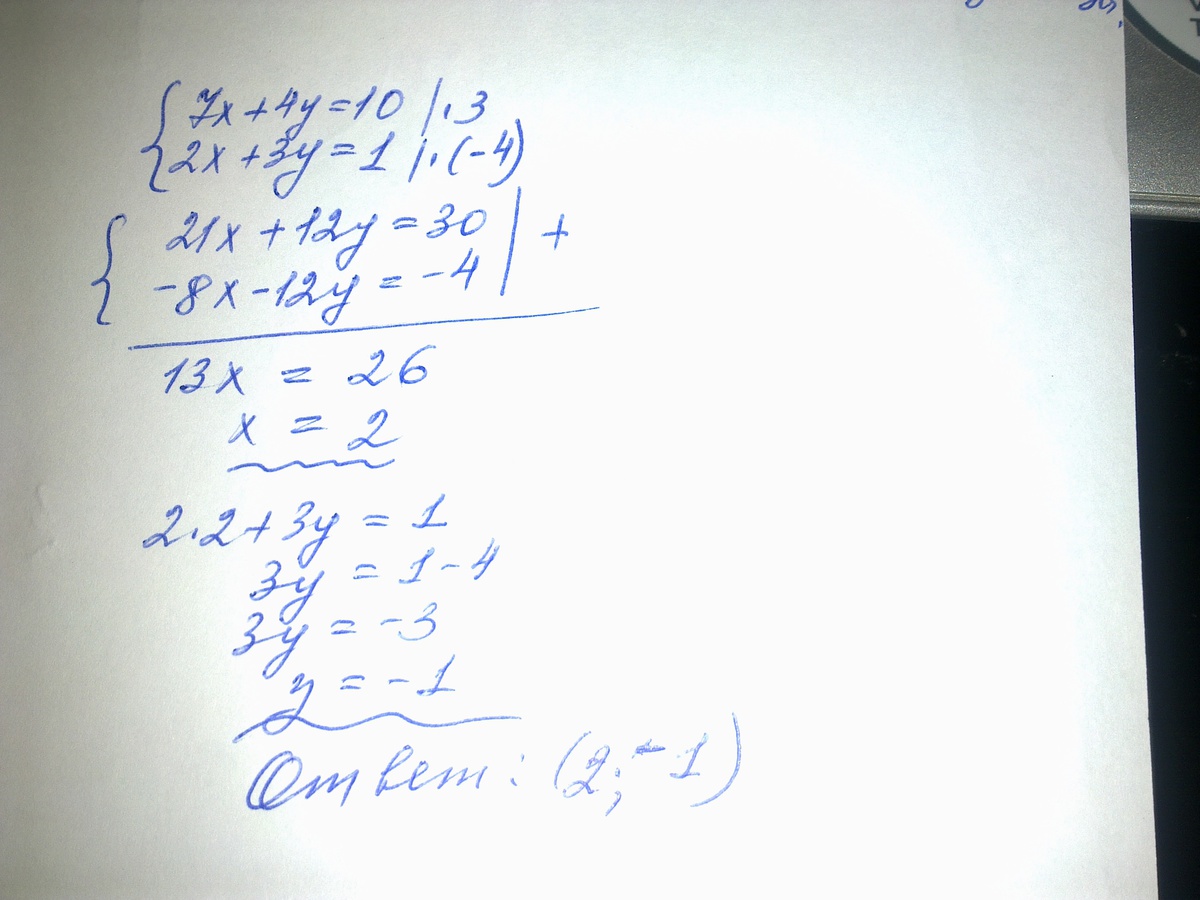 { 7x+4y=10 |·3
2x+3y=1 |·(-4)
{ 21x+12y=30 | +
-8x-12y=-4 |
13x = 26
x = 2
2·2+3y = 1
3y = 1-4
3y = -3
y = -1
Ответ: (2; -1)